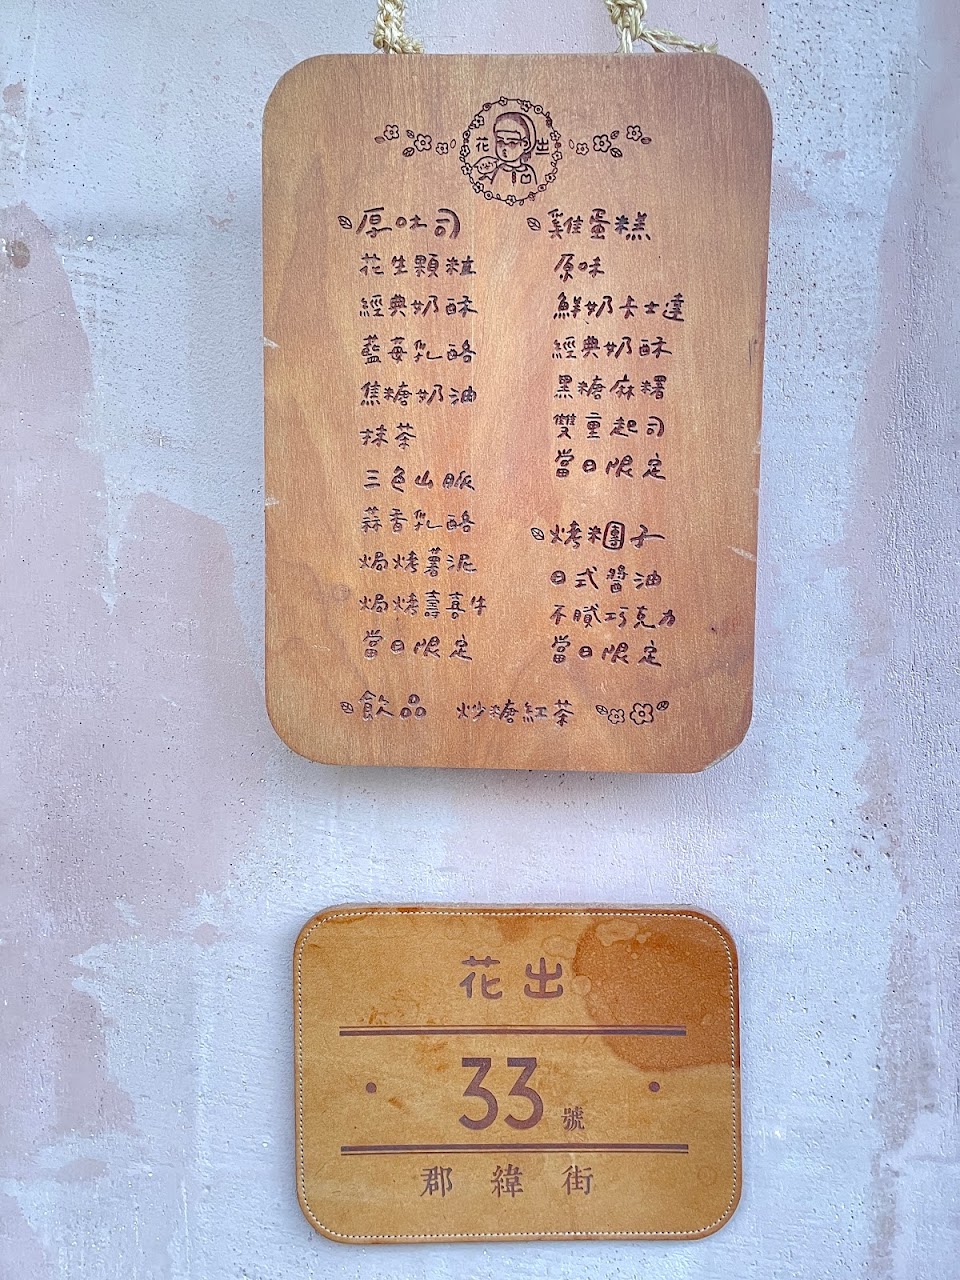 花出
厚吐司
花生顆粒
經典奶酥
藍莓乳酪
焦糖奶油
抹茶
三色山脈
蒜香乳酪
焗烤薯泥
焗烤壽喜牛
當日限定
雞蛋糕
原味
鮮奶卡士達
經典奶酥
黑糖麻糬
雙重起司
當日限定
烤米團子
日式醬油
不膩巧克力
當日限定
飲品 炒糖紅茶
花出
33號
郡緯街